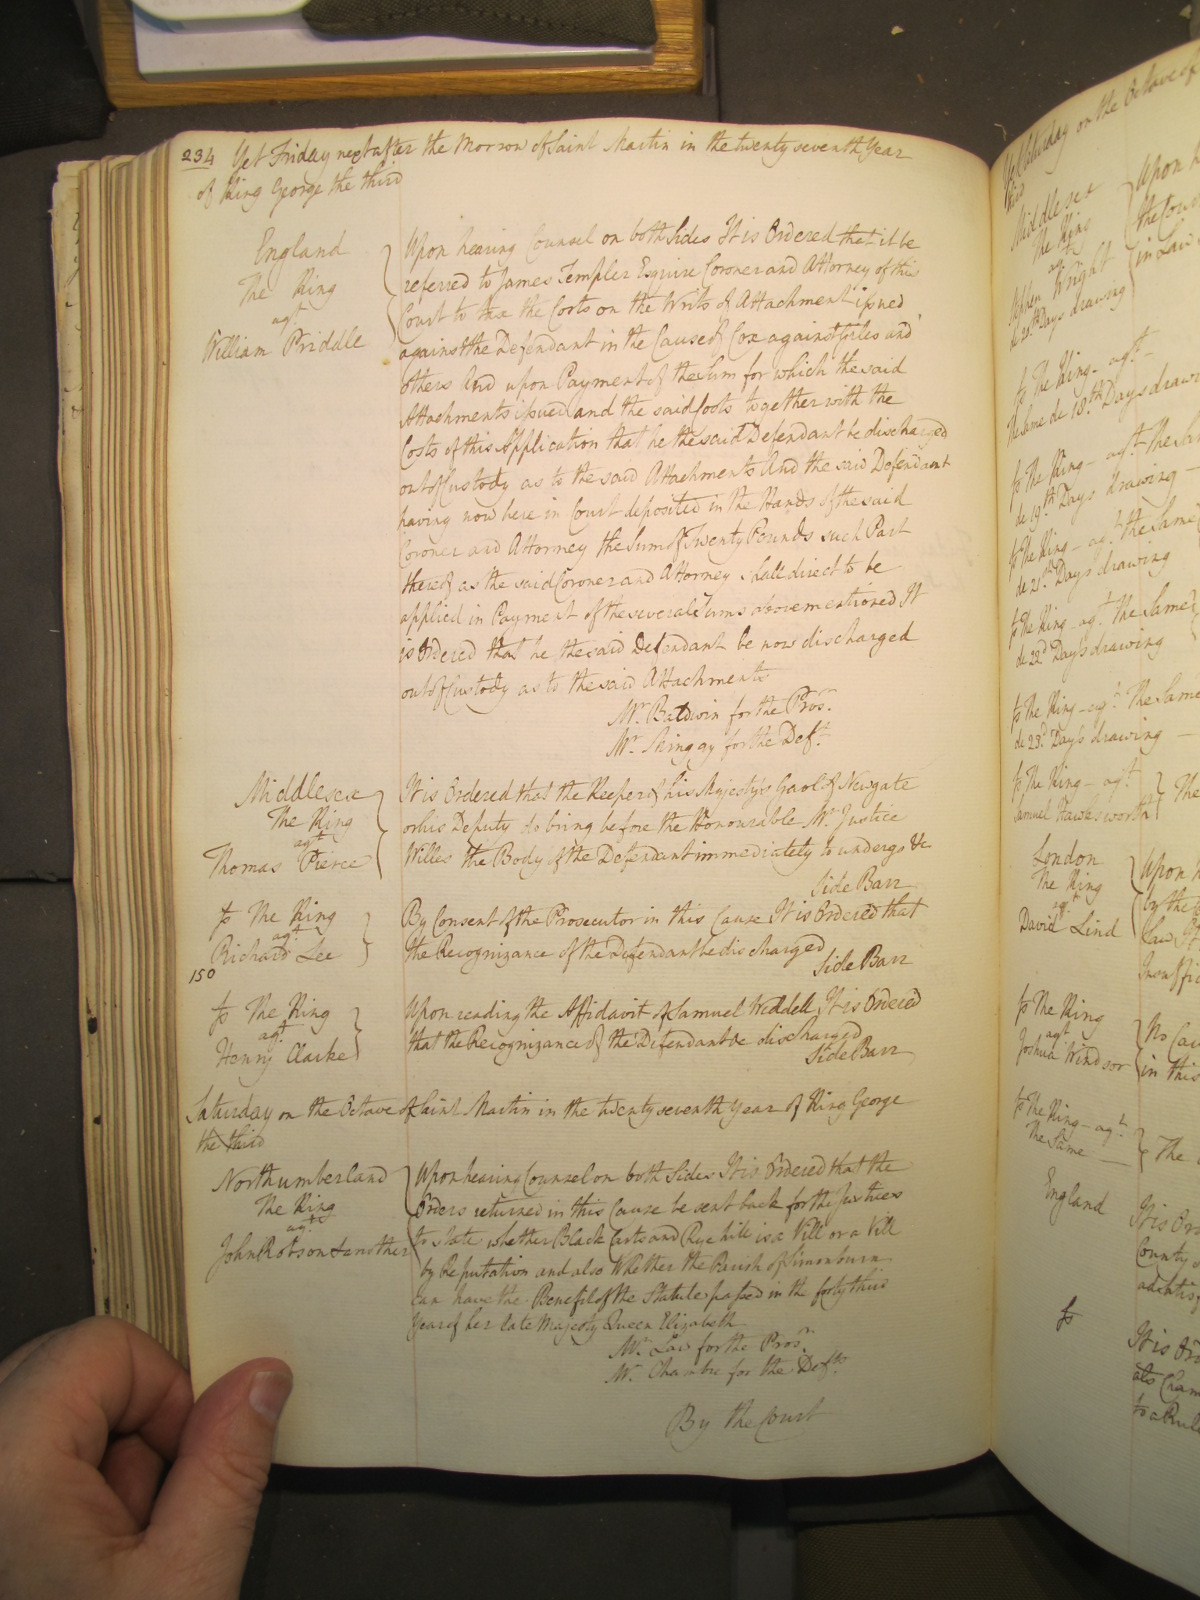 234 Yet Friday next after the Morrow of Saint Martin in the twenty seventh Year
of King George the third
England
The King
agt
William Priddle
Upon hearing Counsel on both Sides It is Ordered that it be
referred to James Templer Esquire Coroner and Attorney of this
Court to tax the Costs on the Writs of Attachment issued
against the Defendant in the Cause of Cox against and
others And upon Payment of the Sum for which the said
Attachments issued and the said Costs together with the
Costs of this Application that he the said Defendant be discharged
out of Custody as to the said Attachments And the said Defendant
having now here in Court deposited in the Hands of the said
Coroner and Attorney the Sum of Twenty Pounds such Part
thereof as the said Coroner and Attorney shall direct to be
applied in Payment of the several Sums abovementioned It
is Ordered that he the said Defendant be now discharged
out of Custody as to the said Attachments
Mr. Baldwin for the Prosr.
Mr. for the Deft.
Middlesex
The King
agt
Thomas Pierce
It is Ordered that the Keeper of his Majesty's Gaol of Newgate
or his Deputy do bring before the Honourable Mr. Justice
Willes the Body of the Defendant immediately to undergo &c
Side Barr
fs The King
agt
Richard Lee
By Consent of the Prosecutor in this Cause It is Ordered that
the Recognizance of the Defendant be discharged
Side Barr
150
fs The King
agt
Henry Clarke
Upon reading the Affidavit of Samuel Weddell It is Ordered
that the Recognizance of the Defendant be discharged
Side Barr
Saturday on the Octave of Saint Martin in the twenty seventh Year of King George
the third
Northumberland
The King
agt
John Robson & another
Upon hearing Counsel on both Sides It is Ordered that the
Orders returned in this Cause be sent back for the Justices
to state whether Black Carts and Rye hill is a Vill or a Vill
by Reputation and also Whether the Parish of Simonburn
can have the Benefit of the Statute passed in the forty third
Year of her late Majesty Queen Elizabeth
Mr. Law for the Prosr.
Mr. Chambre for the Defts.
By the Court
Yet Saturday on the Octave of
Middlesex
The King
agt
Wright
de 20th Days drawing
Upon
the Court
in Law
fs The King - agt
the Same de 18th Days drawing
fs The King - agt the Same
de 19th Days drawing
fs The King - agt the Same
de 21st Days drawing
fs The King - agt the Same
de 22d Days drawing
fs The King - agt the Same
de 23d Days drawing
fs The King - agt
Samuel Hawksworth
The
London
The King
agt
David Lind
Upon
by the
Law It
fs The King
agt
Joshua Windsor
No Cau
in this
fs The King - agt
The Same
The
England
It is Or
County
fs
It is Or
to a Rule